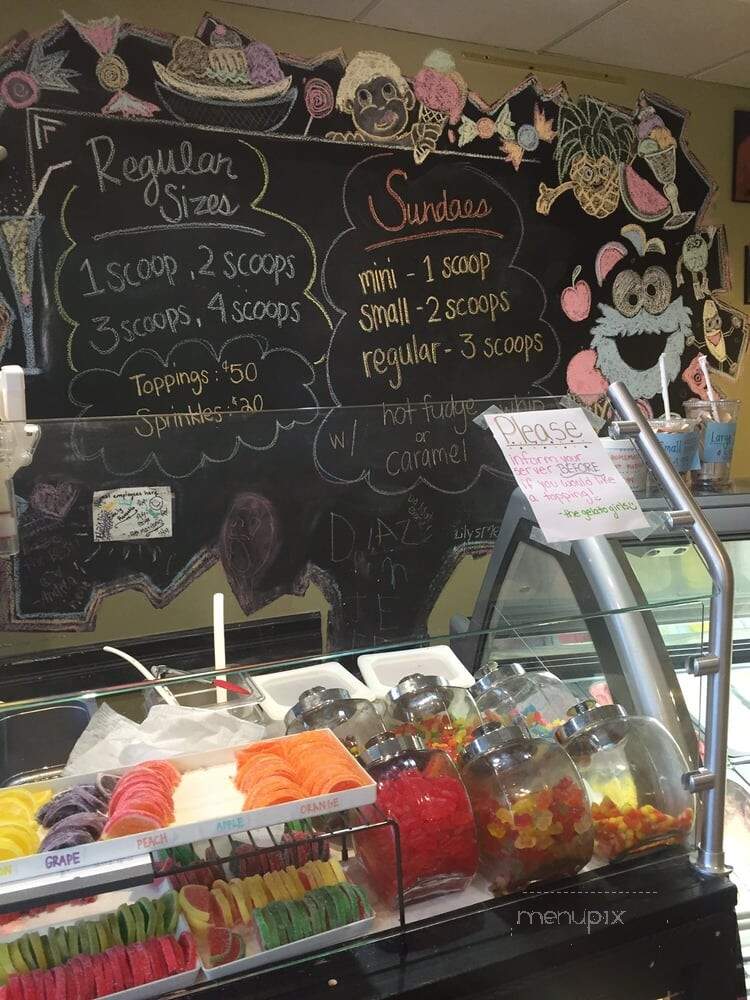 Regular
Sizes
1 scoop, 2 scoops
3 scoops, 4 scoops
Toppings: $.50
Sprinkles: $.20
Sundaes
mini - 1 scoop
small - 2 scoops
regular - 3 scoops
w/ hot fudge whip
or
caramel
Please
inform your
server BEFORE
if you would like
a topping
- the gelato girls
Small
Large
GRAPE
PEACH
APPLE
ORANGE
menupix